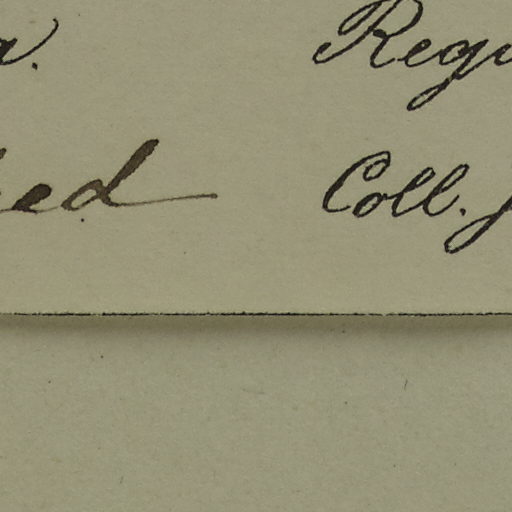 a. Regi
ed Coll. f